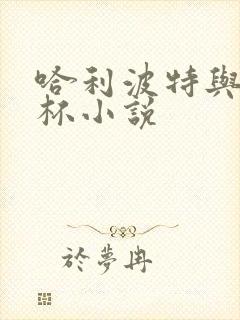 哈利波特與
杯小說
於夢冉